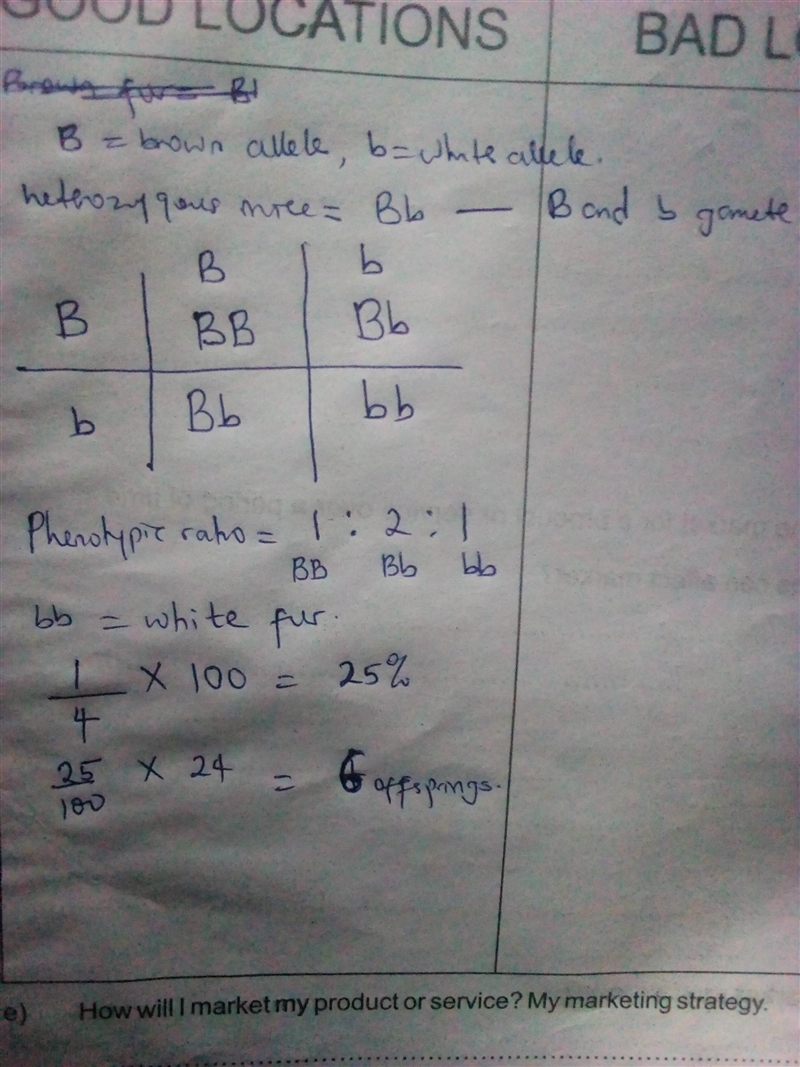 GOOD LOCATIONS
BAD LO
Brown fur = B
B = brown allele, b = white allele.
hetherozygous mice = Bb — B and b gamete
B b
B BB Bb
b Bb bb
Phenotypic ratio = 1 : 2 : 1
BB Bb bb
bb = white fur.
1/4 × 100 = 25%
25/100 × 24 = 6 offsprings.
e) How will I market my product or service? My marketing strategy.